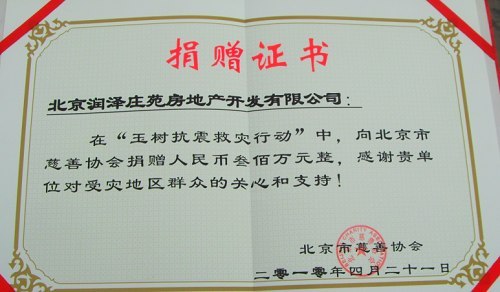 捐赠证书
北京润泽庄苑房地产开发有限公司：
在“玉树抗震救灾行动”中，向北京市
慈善协会捐赠人民币叁佰万元整，感谢贵单
位对受灾地区群众的关心和支持！
北京市慈善协会
二零一零年四月二十一日